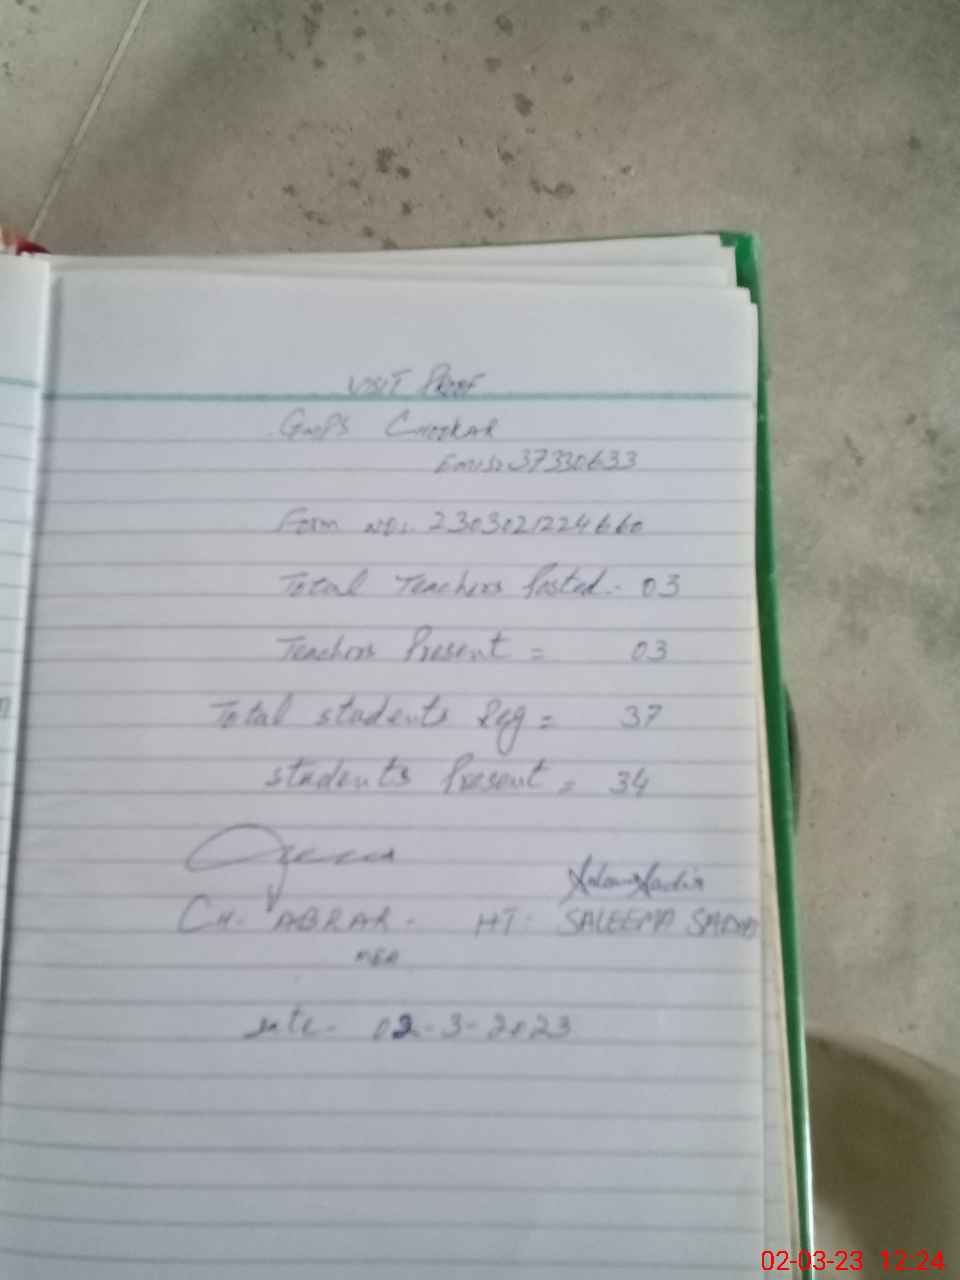 VISIT PROOF
GMPS CHOKAR
Emis: 37330633
Form NO:. 2303021224660
Total Teachers Posted:- 03
Teachers Present = 03
Total students Reg = 37
students Present = 34
CH. ABRAR. HT: SALEEMA
MEA
date. 02-3-2023
02-03-23 12:24